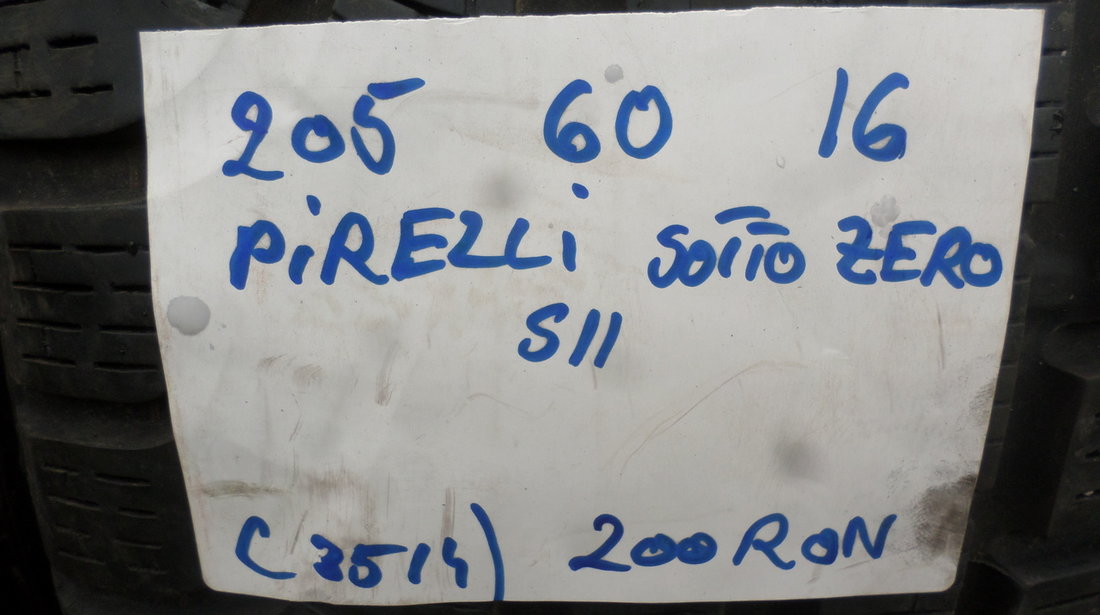 205 60 16
PIRELLI SOTTO ZERO
SII
(3514) 200 RON